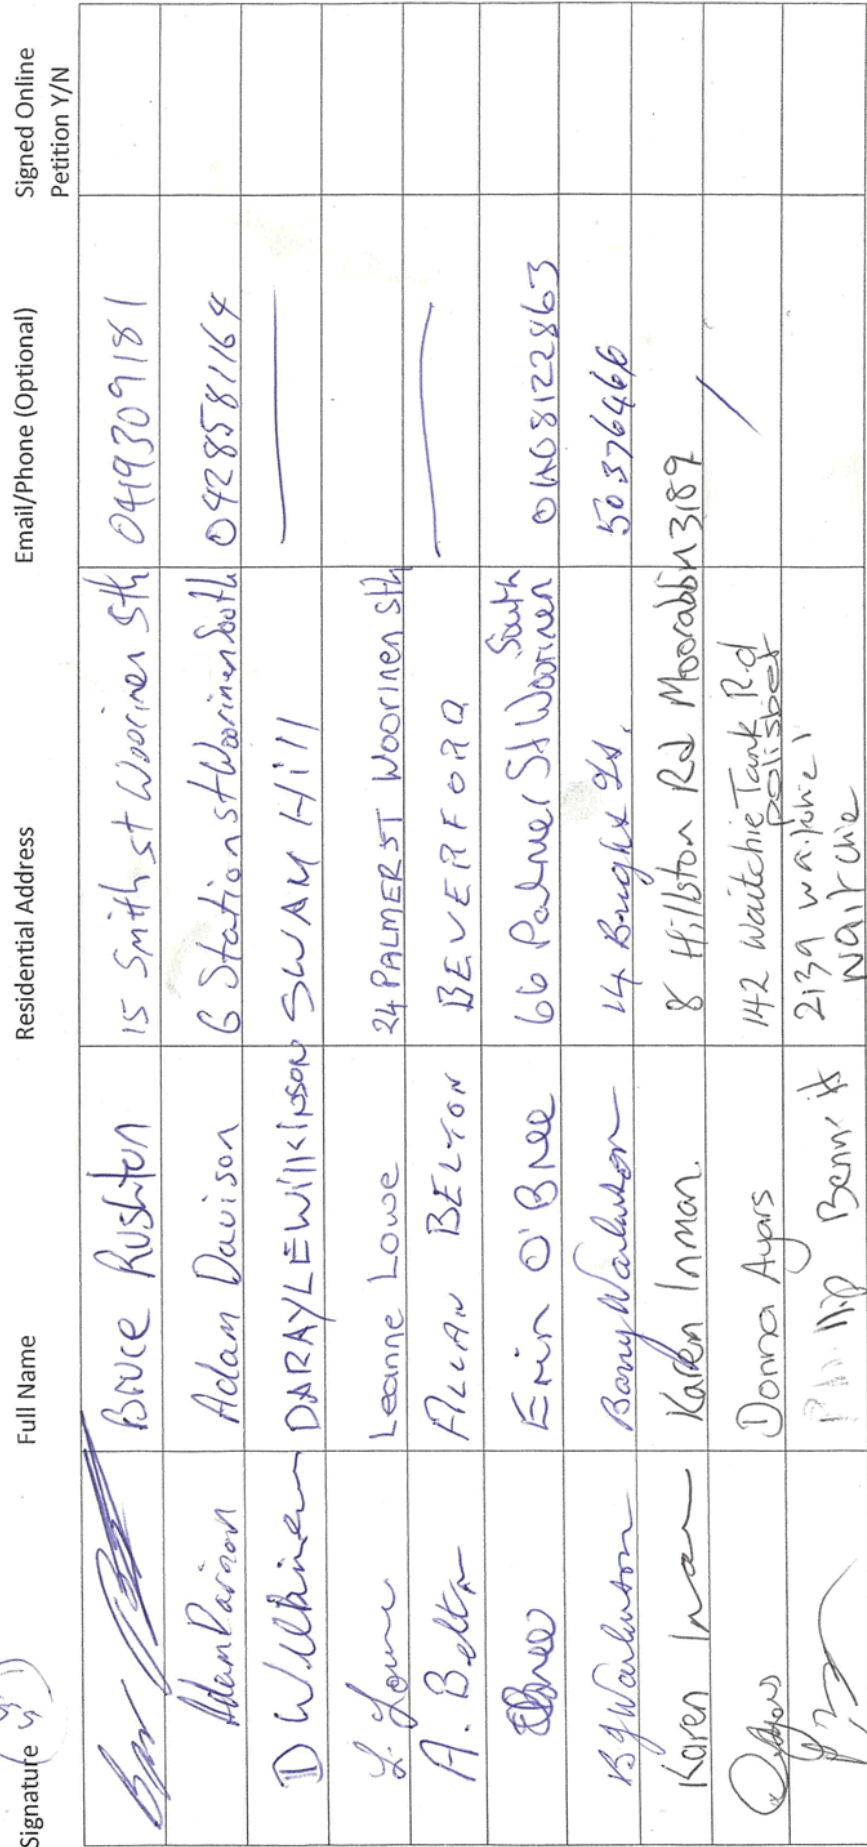 Signature Full Name Residential Address Email/Phone (Optional) Signed Online
Petition Y/N
Bruce Rushton 15 Smith st Woorinen Sth 0419309181
Adam Davison Adam Davison 6 Station st Woorinen South 0428581164
D Wilkinson DARAYLE Wilkinson SWAN Hill
L. Lowe Leanne Lowe 24 PALMER ST Woorinen Sth
A. Belton ALLAN BELTON BEVERFORD
EOBree Erin O'Bree 66 Palmer St Woorinen South 0408122863
BJ Warburton Barry Warburton 14 Bright St. 50376466
Karen Inman Karen Inman. 8 Hillston Rd Moorabbin 3189
Donna Ayars 142 Waitchie Tank Rd
Phillip Bennett 2139
waitchie